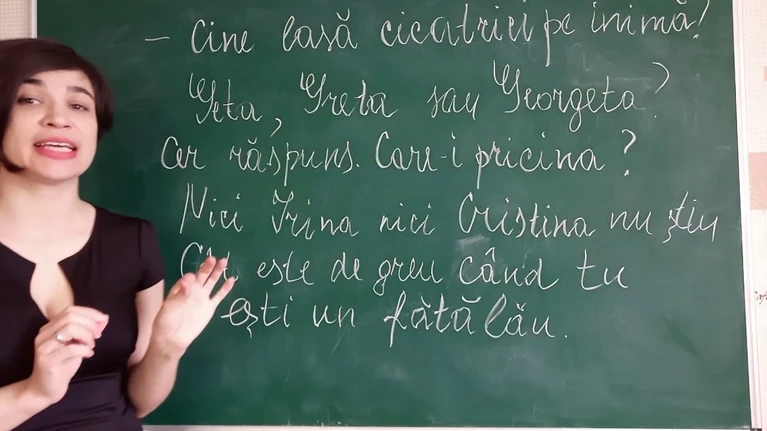 – Cine lasă cicatrici pe inimă?
Geta, Greta sau Georgeta?
Cer răspuns. Care-i pricina?
Nici Irina nici Cristina nu știu
Cât este de greu când tu
ești un fătălău.